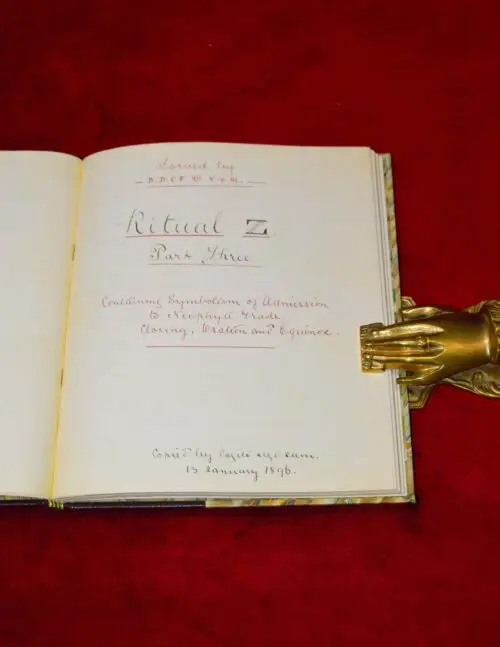 by
Ritual Z
Part Three
Containing Symbolism of Admission
to Neophyte Grade
Closing, Oration and Equinox.
Copied by
13 January 1896.